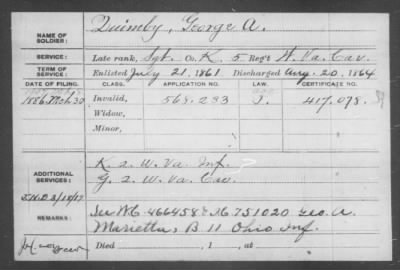 NAME OF SOLDIER: Quimby, George A.
SERVICE: Late rank, Sgt. Co. K, 5 Reg't W. Va. Cav.
TERM OF SERVICE: Enlisted July 21, 1861. Discharged Aug. 20, 1864
DATE OF FILING. CLASS. APPLICATION NO. LAW. CERTIFICATE NO.
1886. Mch. 30 Invalid, 569.233 417.078.
Widow,
Minor,
ADDITIONAL SERVICES: K. 2. W. Va. Inf.
G. 2. W. Va. Cav.
REMARKS: 466458 751020 Geo. A.
Marietta, B 11 Ohio Inf.
Died , 1 , at